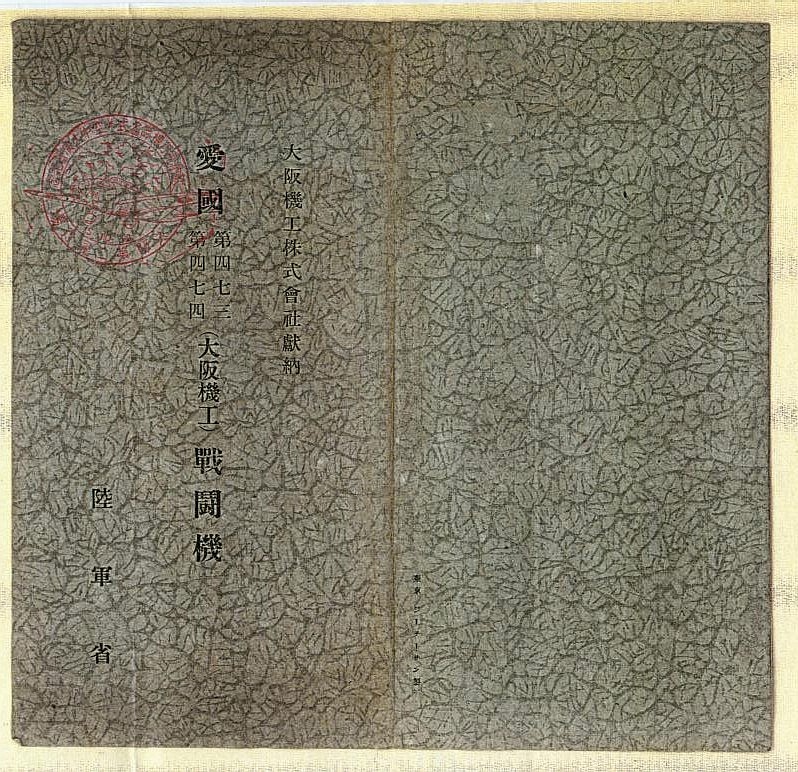 大阪機工株式會社獻納
愛國 第四七三 第四七四 (大阪機工) 戰鬪機
陸軍省